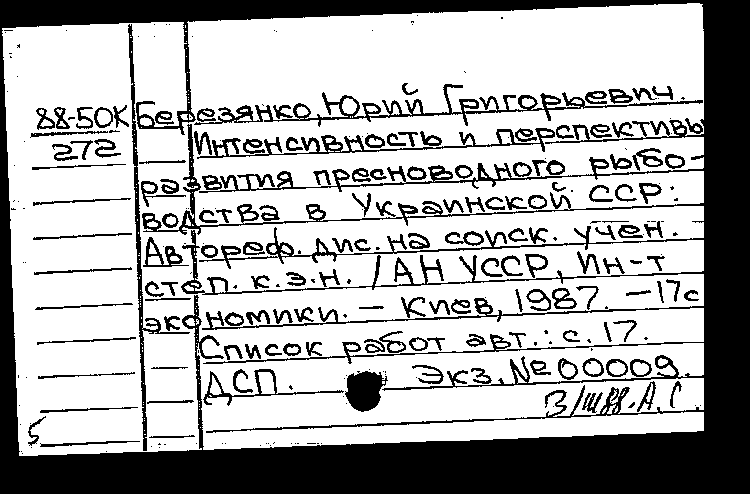 88-50К Березянко, Юрий Григорьевич.
272 Интенсивность и перспективы
развития пресноводного рыбо-
водства в Украинской ССР:
Автореф. дис. на соиск. учен.
степ. к.э.н. / АН УССР, Ин-т
экономики. - Киев, 1987. - 17с
Список работ авт.: с. 17.
ДСП. Экз. № 00009.
3/III 88. А.С.
5